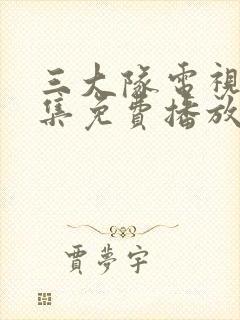 三大隊電視
集免費播放
賈夢宇